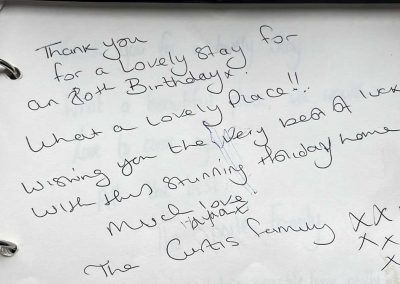 Thank you
for a lovely stay for
an 80th Birthday x.
What a lovely place!!
Wishing you the very best of luck
with this stunning Holiday home
Much love
The Curtis family xxx
xx
x